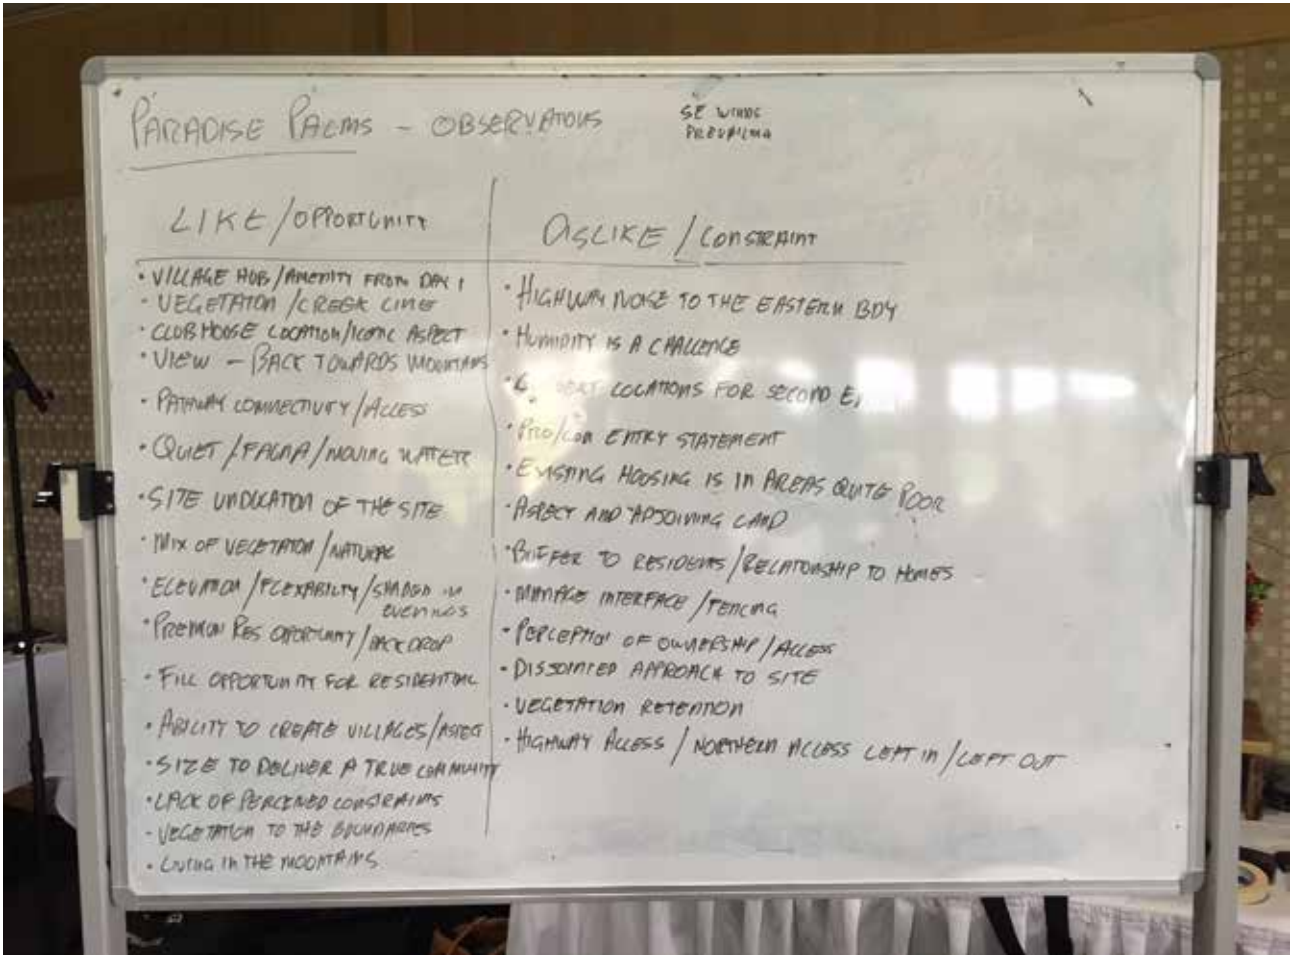 PARADISE PALMS - OBSERVATIONS
SE WINDS
PREVAILING
LIKE/OPPORTUNITY
• VILLAGE HUB/AMENITY FROM DAY 1
- VEGETATION/CREEK LINE
• CLUBHOUSE LOCATION/ICONIC ASPECT
• VIEW - BACK TOWARDS MOUNTAINS
• PATHWAY CONNECTIVITY/ACCESS
• QUIET/FAUNA/MOVING WATER
• SITE UNDULATION OF THE SITE
• MIX OF VEGETATION/NATURAL
• ELEVATION/FLEXABILTY/SHADED IN
EVENINGS
• PREMIUM RES OPPORTUNITY/BACKDROP
- FILL OPPORTUNITY FOR RESIDENTIAL
• ABILITY TO CREATE VILLAGES/ASPECT
• SIZE TO DELIVER A TRUE COMMUNITY
• LACK OF PERCEIVED CONSTRAINTS
- VEGETATION TO THE BOUNDARIES
• LIVING IN THE MOUNTAINS
DISLIKE/CONSTRAINT
• HIGHWAY NOISE TO THE EASTERN BDY
• HUMIDITY IS A CHALLENGE
• LOCATIONS FOR SECOND
• PRO/CON ENTRY STATEMENT
• EXISTING HOUSING IS IN AREAS QUITE POOR
• ASPECT AND ADJOINING LAND
• BUFFER TO RESIDENTS/RELATIONSHIP TO HOMES
• MANAGE INTERFACE/FENCING
• PERCEPTION OF OWNERSHIP/ACCESS
• DISJOINTED APPROACH TO SITE
- VEGETATION RETENTION
• HIGHWAY ACCESS/NORTHERN ACCESS LEFT IN/LEFT OUT